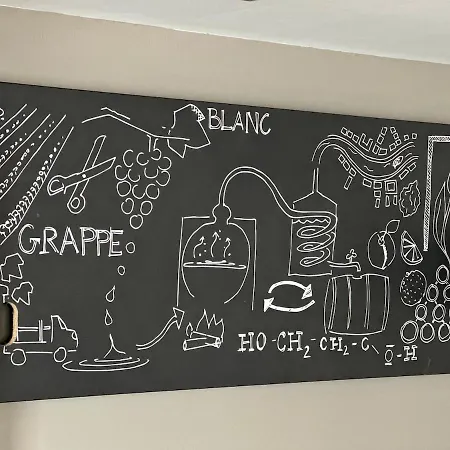 BLANC
GRAPPE
HO-CH₂-CH₂-C
O-H